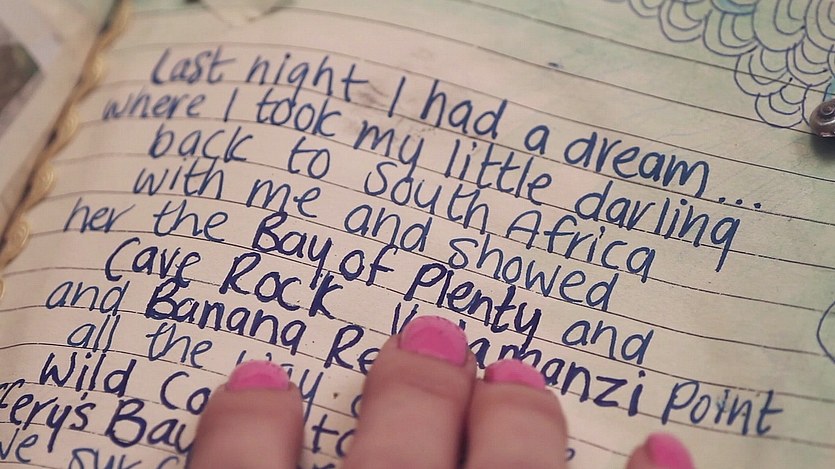 Last night I had a dream...
where I took my little darling
back to South Africa
with me and showed
her the Bay of Plenty and
Cave Rock
and Banana Point
all the
Wild
Bay to